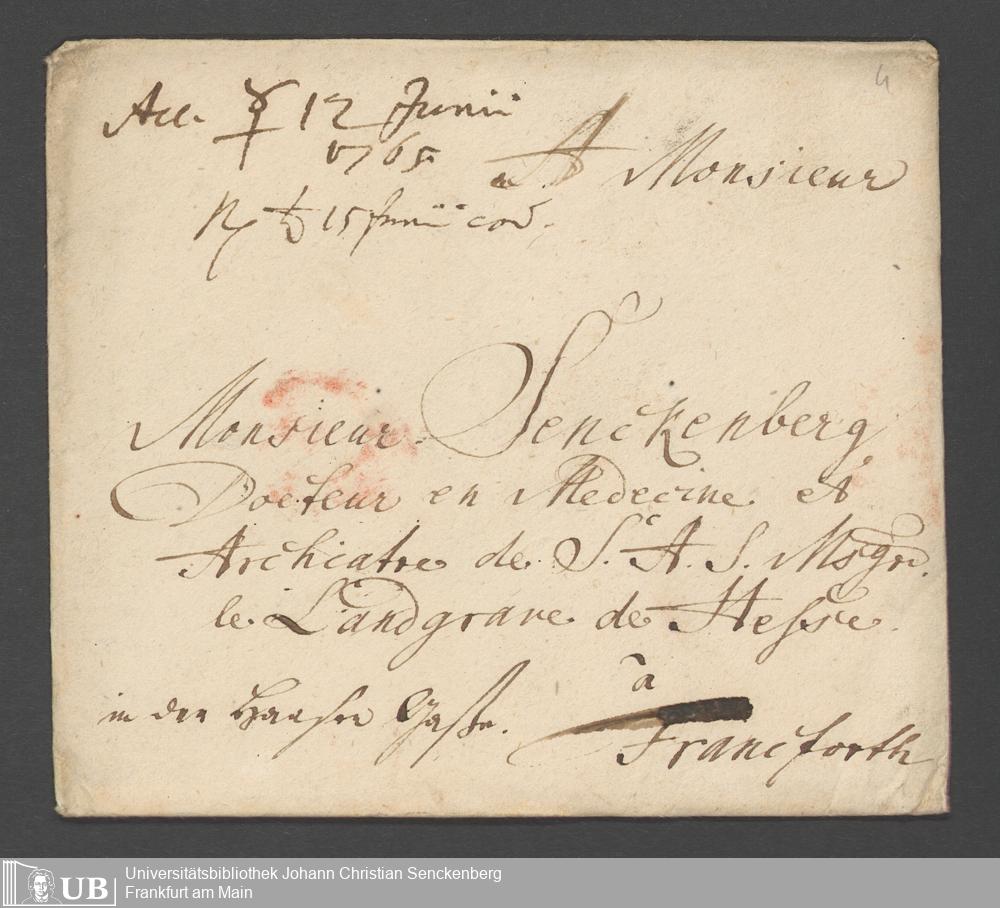 Acc. ☿ 12 Junii
1765.
A Monsieur
♄ 15 Junii eod.
4
Monsieur Senckenberg
Docteur en Medecine et
Archiatre de S. A. S. Msgr.
le Landgrave de Hesse.
in der Haasen Gasse.
à
Francforth
UB
Universitätsbibliothek Johann Christian Senckenberg
Frankfurt am Main